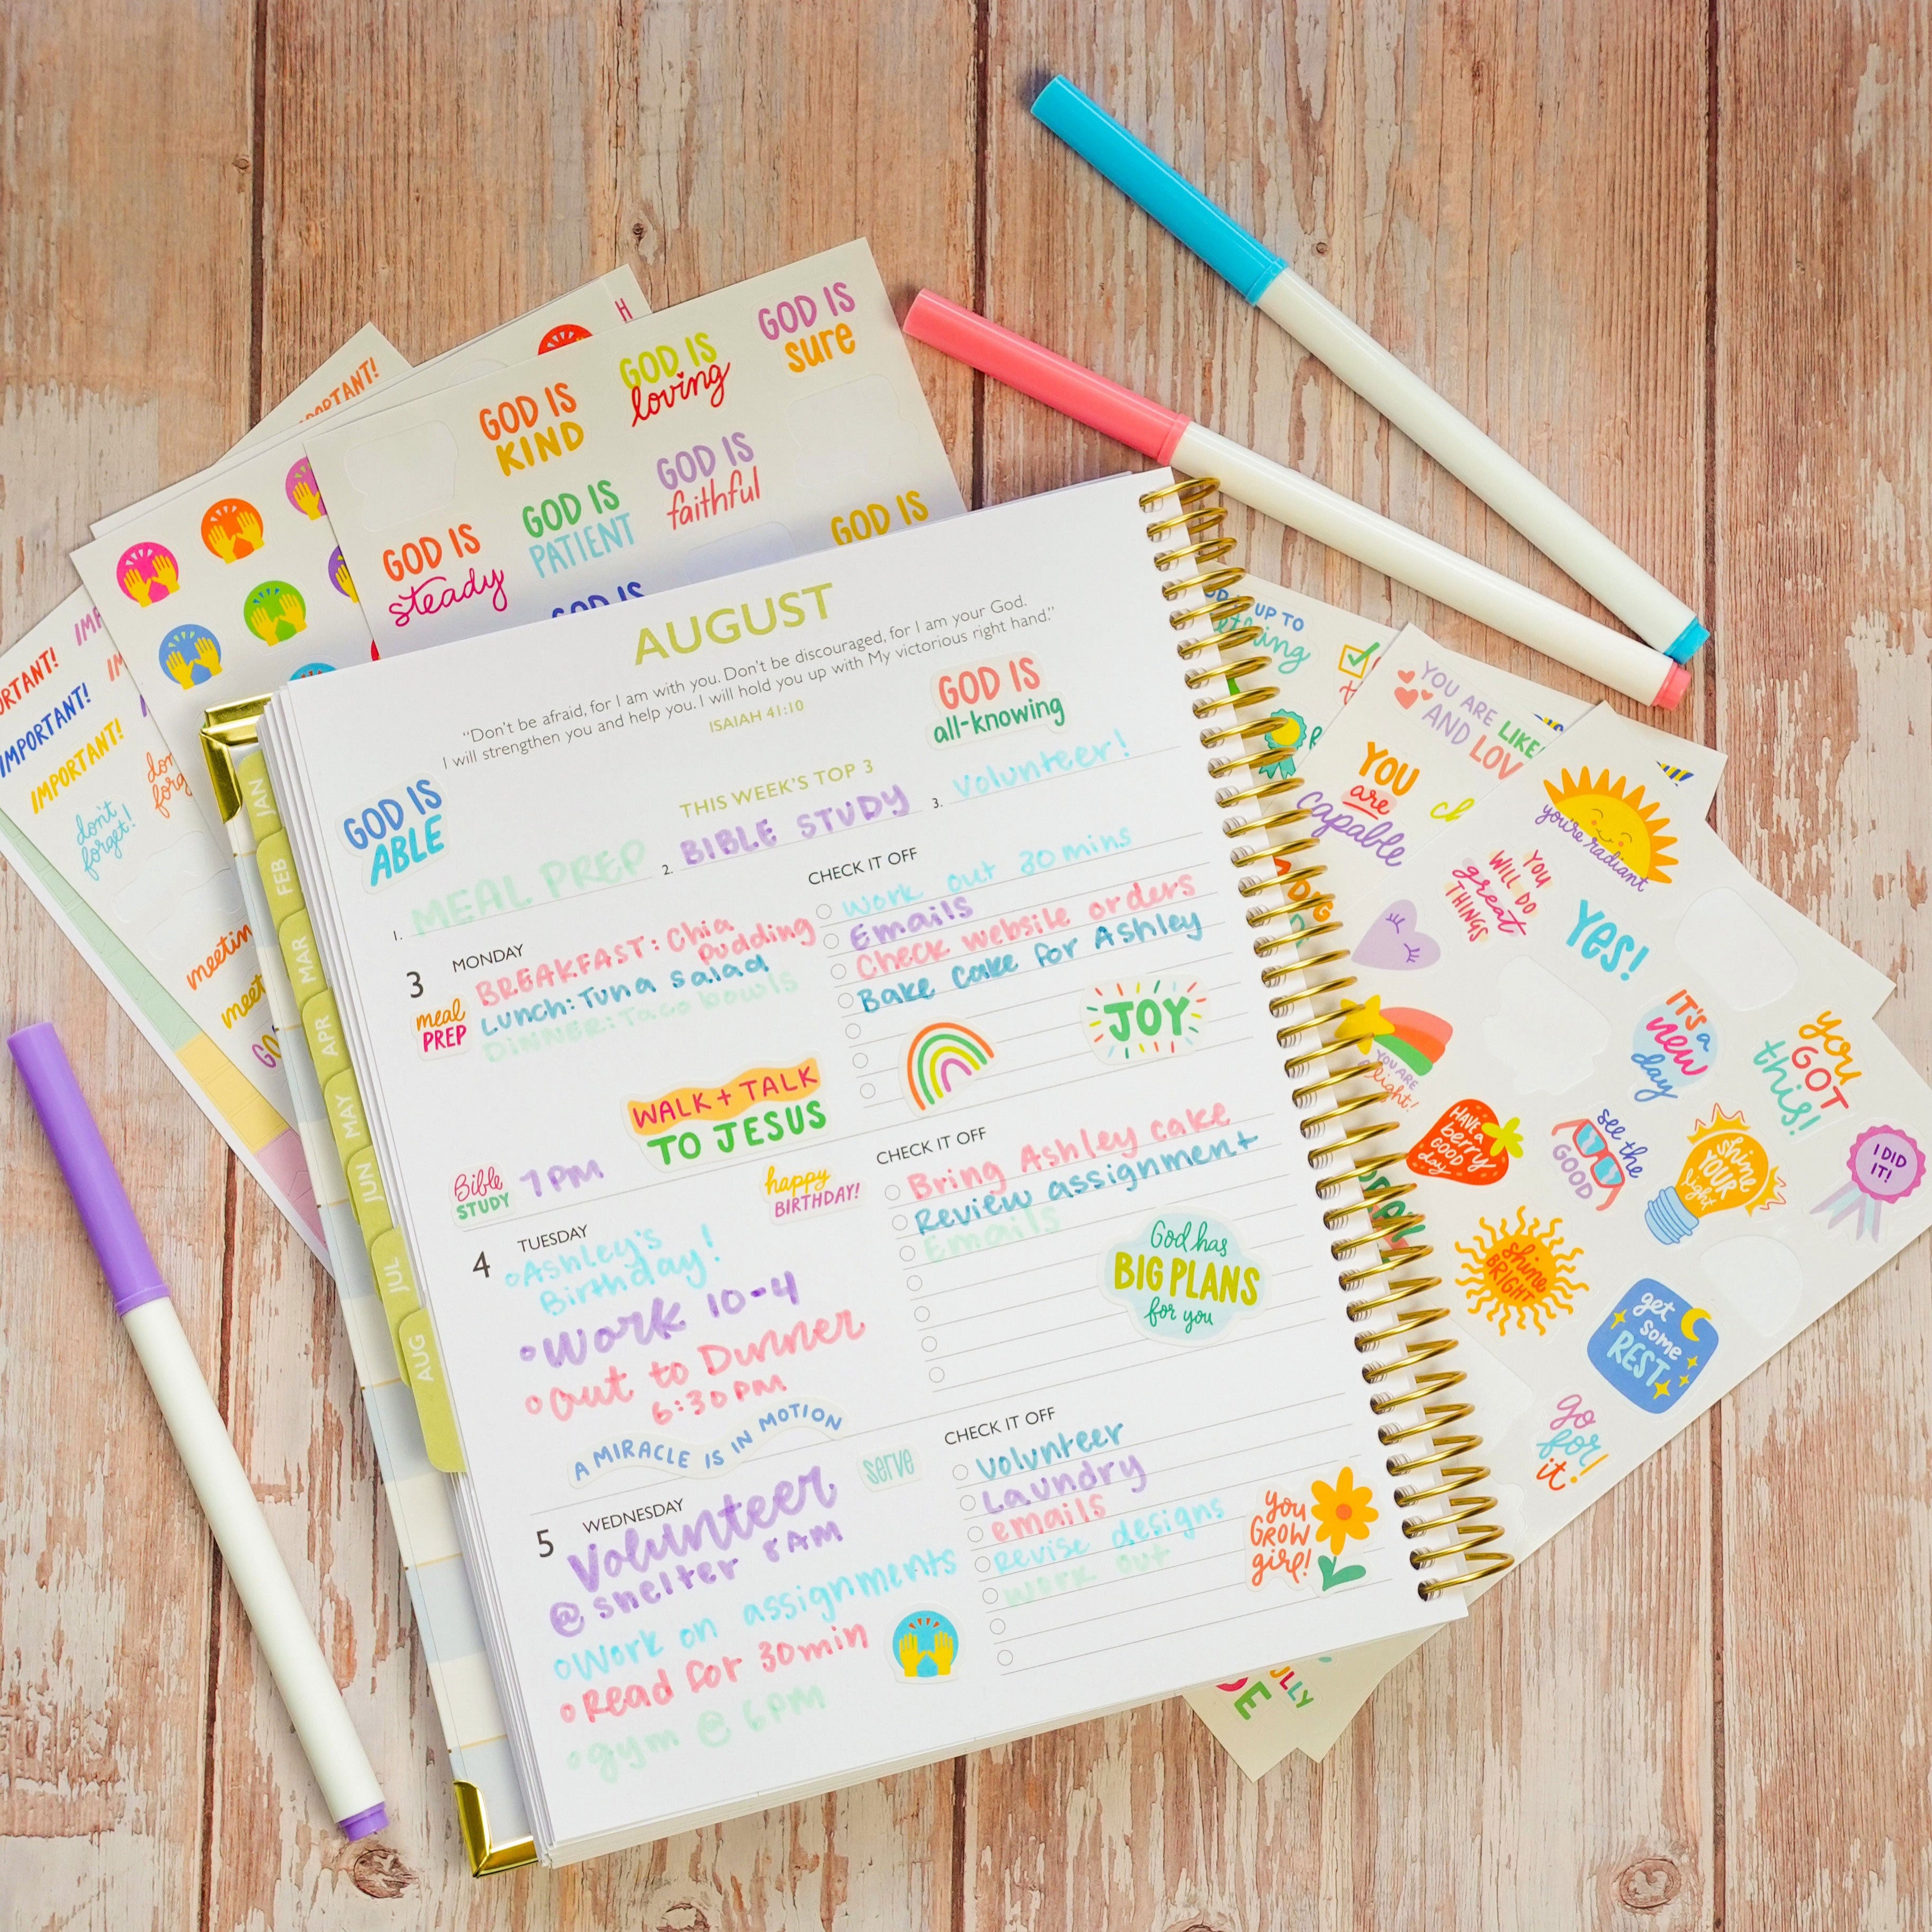 IMPORTANT!
H
GOD IS
KIND
GOD IS
loving
GOD IS
sure
GOD IS
steady
GOD IS
PATIENT
GOD IS
faithful
GOD IS
GOD IS
IMPORTANT!
IMPORTANT!
don't
forget!
AUGUST
"Don't be afraid, for I am with you. Don't be discouraged, for I am your God.
I will strengthen you and help you. I will hold you up with My victorious right hand."
ISAIAH 41:10
GOD IS
all-knowing
GOD IS
ABLE
THIS WEEK'S TOP 3
1. MEAL PREP
2. BIBLE STUDY
3. Volunteer!
JAN
FEB
MAR
APR
MAY
JUN
JUL
AUG
3 MONDAY
meal
PREP
BREAKFAST: Chia
Pudding
Lunch: Tuna salad
DINNER: Taco bowls
WALK + TALK
TO JESUS
Bible
STUDY
7PM
happy
BIRTHDAY!
CHECK IT OFF
Work out 30 mins
Emails
Check website orders
Bake cake for Ashley
JOY
4 TUESDAY
Ashley's
Birthday!
Work 10-4
Out to Dinner
6:30PM
A MIRACLE IS IN MOTION
CHECK IT OFF
Bring Ashley cake
Review assignment
Emails
God has
BIG PLANS
for you
serve
5 WEDNESDAY
Volunteer
@ shelter 8AM
Work on assignments
Read for 30min
gym @ 6PM
CHECK IT OFF
Volunteer
Laundry
emails
Revise designs
work out
you
GROW
girl!
UP TO
YOU ARE LIKE
AND LOV
YOU
are
capable
you're radiant
YOU
WILL DO
great
THINGS
YES!
YOU ARE
a light!
IT'S a
new
day
you
GOT
this!
HAVE a
berry
GOOD
day
see the
GOOD
shine
YOUR
light
I DID
IT!
shine
BRIGHT
get
some
REST
go
for
it!